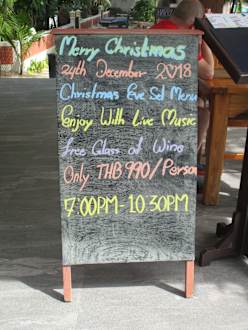 Merry Christmas
24th December 2018
Christmas Eve Set Menu
Enjoy With Live Music
free Glass of Wine
Only THB 990/Person
7:00PM-10.30PM